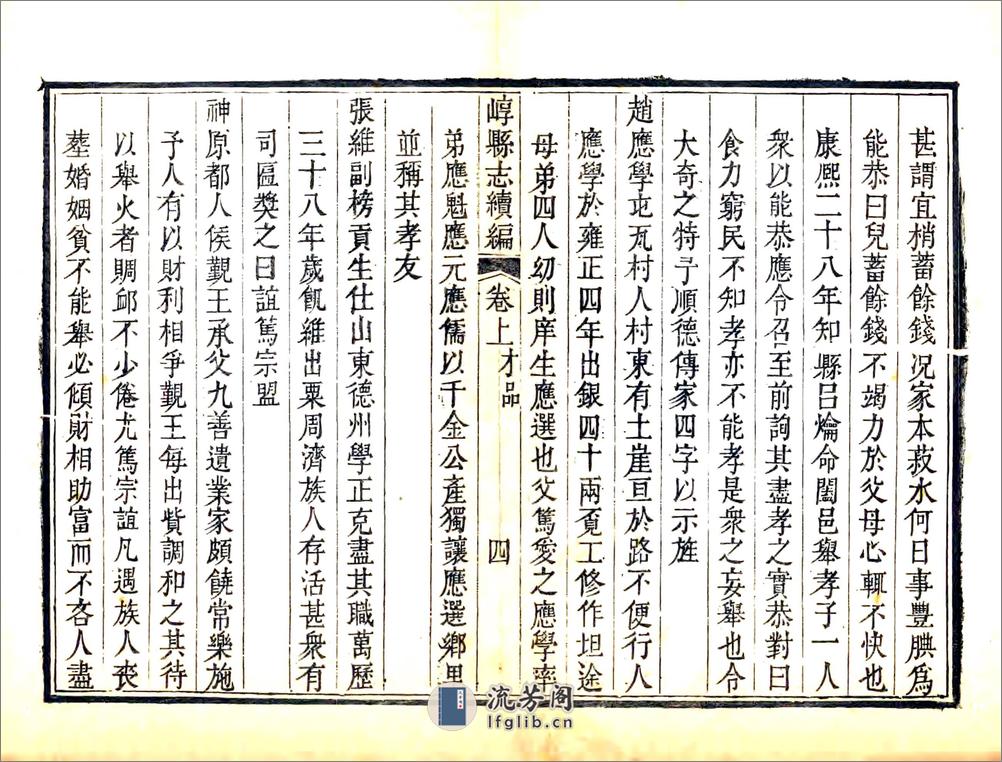 甚謂宜梢蓄餘錢况家本菽水何日事豐腆爲
能恭曰兒蓄餘錢不竭力於父母心輒不快也
康熈二十八年知縣吕爚命闔邑舉孝子一人
衆以能恭應令召至前詢其盡孝之實恭對曰
食力窮民不知孝亦不能孝是衆之妄舉也令
大奇之特予順德傳家四字以示旌
趙應學屯瓦村人村東有土崖亘於路不便行人
應學於雍正四年出銀四十兩覔工修作坦途
母弟四人幼則庠生應選也父篤愛之應學率
崞縣志續編 卷上 才品 四
弟應魁應元應儒以千金公產獨讓應選鄉里
並稱其孝友
張維副榜貢生仕山東德州學正克盡其職萬歷
三十八年歲飢維出粟周濟族人存活甚衆有
司匾獎之曰誼篤宗盟
神原都人侯覲王承父九善遺業家頗饒常樂施
予人有以財利相爭覲王每出貲調和之其待
以舉火者賙邺不少倦尤篤宗誼凡遇族人喪
塟婚姻貧不能舉必傾財相助富而不吝人盡
流芳阁
lfglib.cn